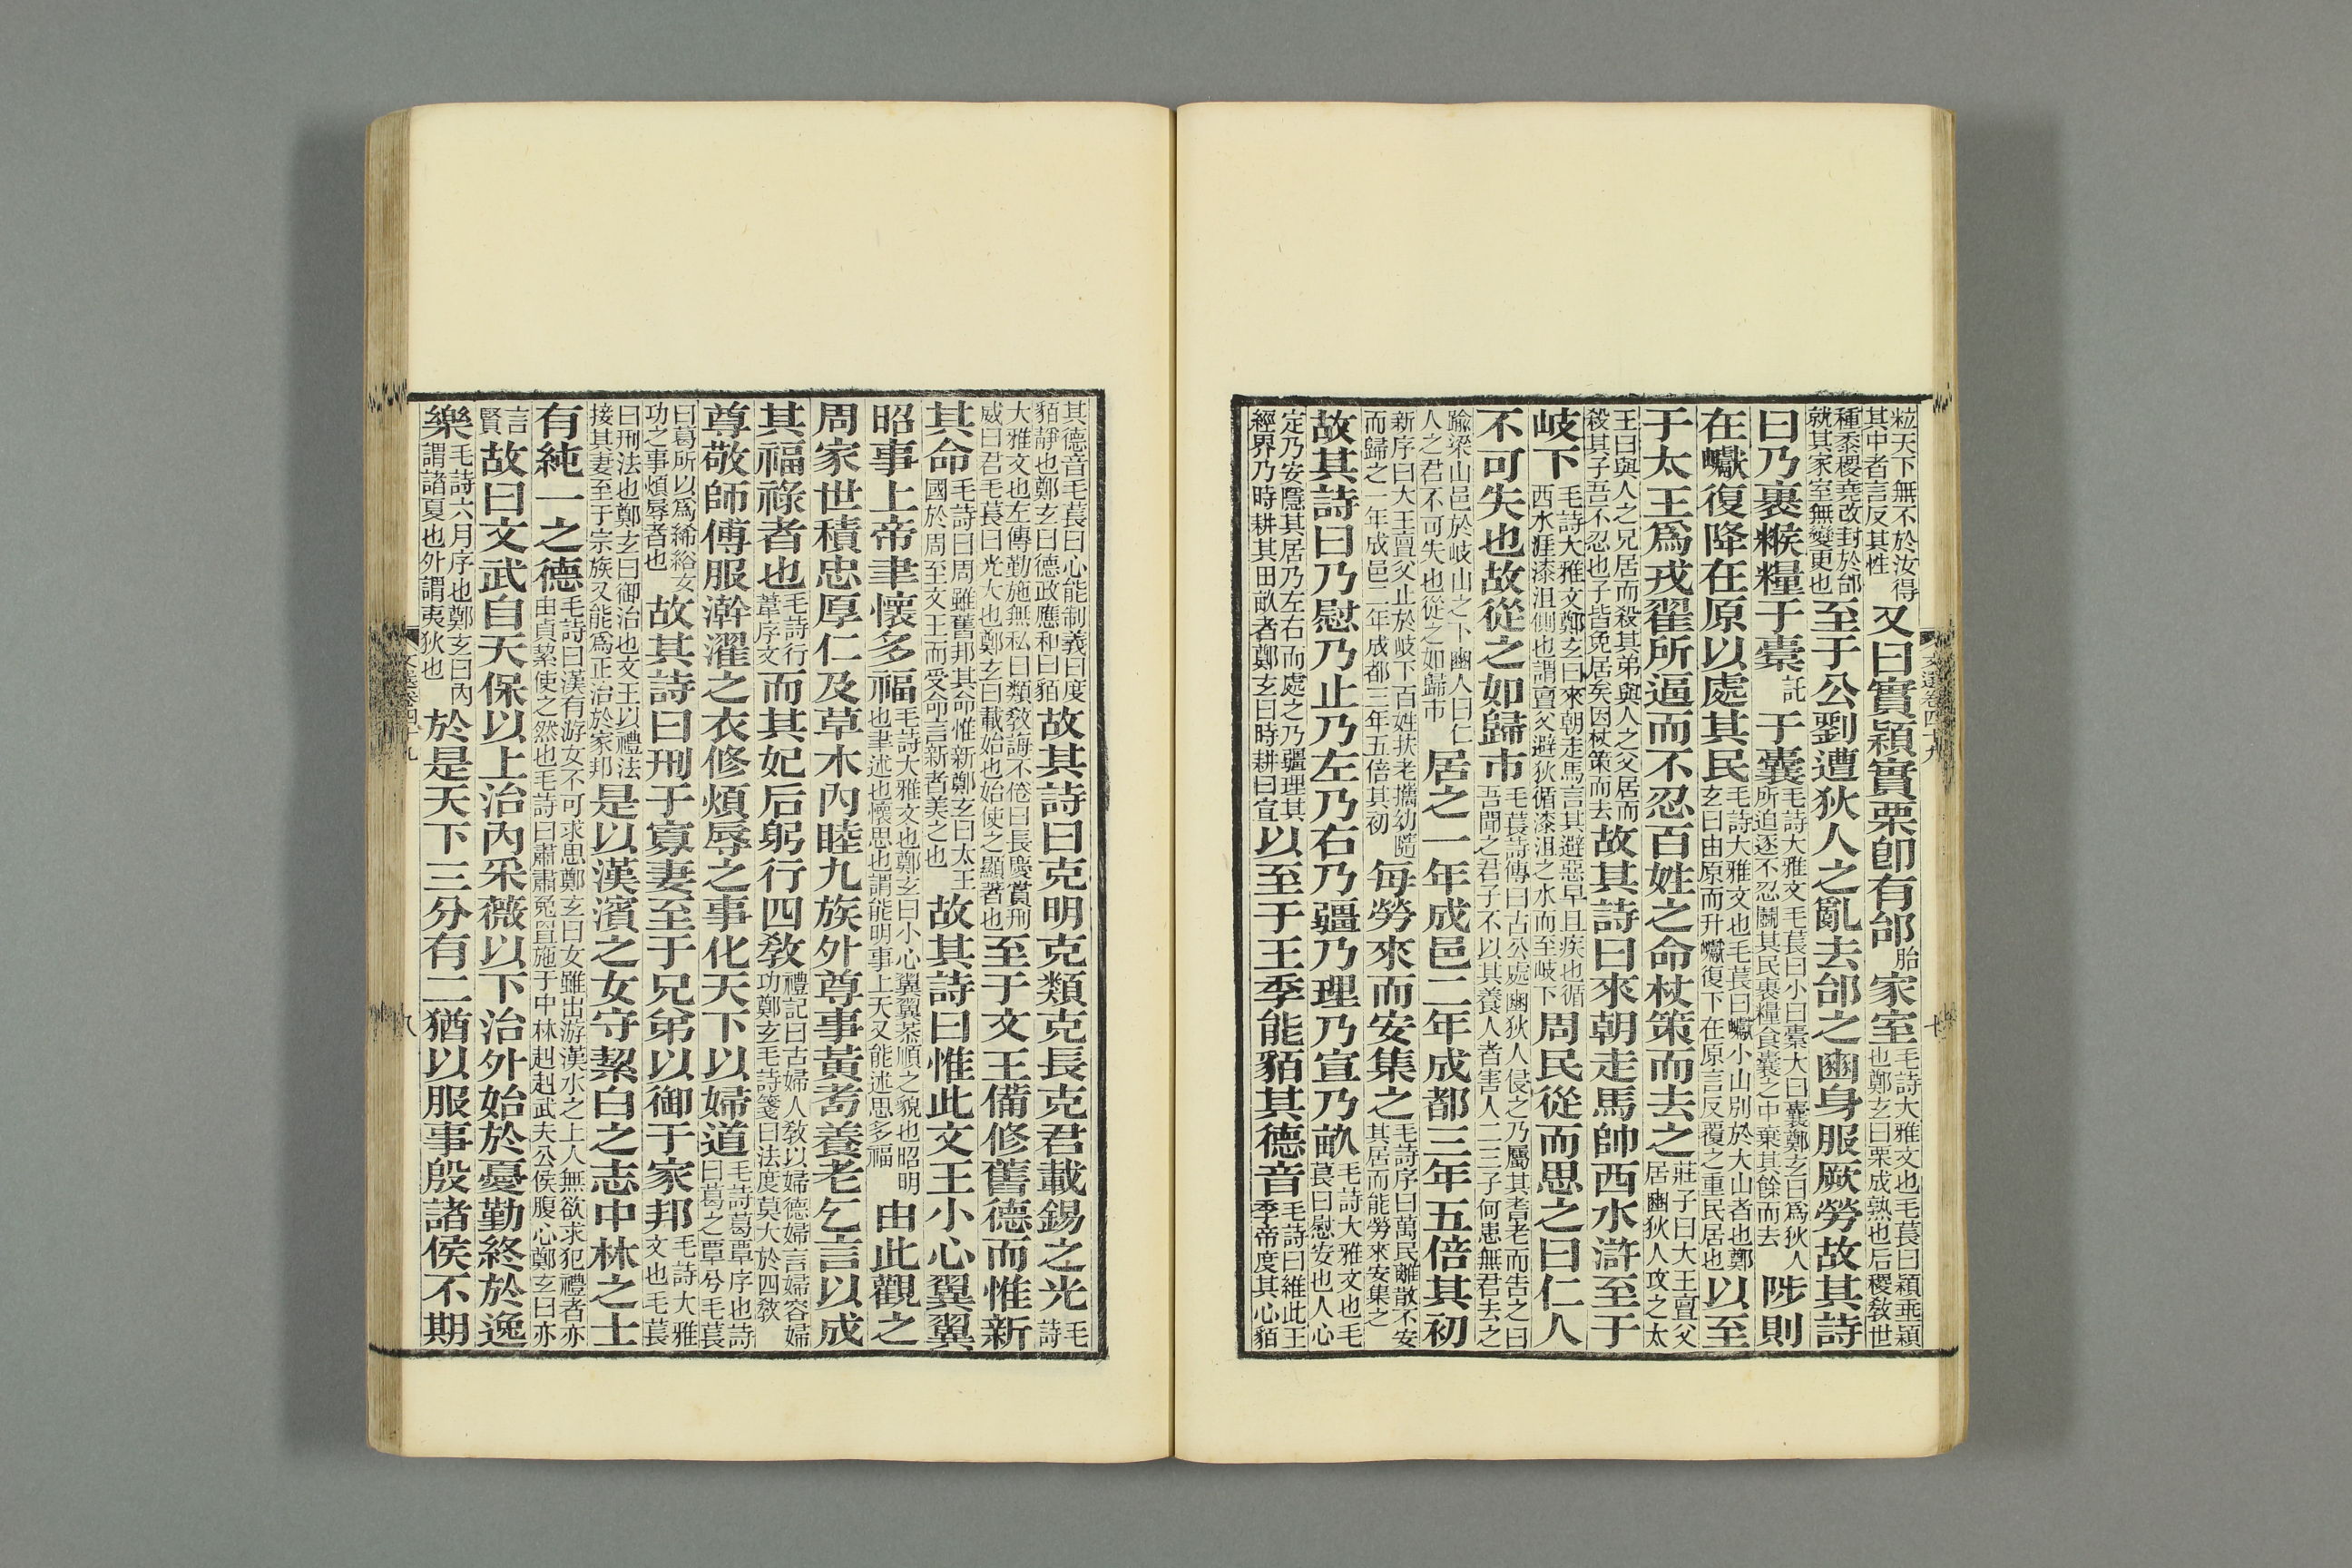 粒天下無不於汝得其中者言反其性又曰實穎實栗即有邰胎家室毛詩大雅文也毛萇曰穎垂穎也鄭玄曰栗成熟也后稷敎世
種黍稷堯改封於邰就其家室無變更也至于公劉遭狄人之亂去邰之豳身服厥勞故其詩
曰乃裹糇糧于橐託于囊毛詩大雅文毛萇曰小曰橐大曰囊鄭玄曰爲狄人所追逐不忍鬭其民裹糧食囊之中棄其餘而去陟則
在巘復降在原以處其民毛詩大雅文也毛萇曰巘小山別於大山者也鄭玄曰由原而升巘復下在原言反覆之重民居也以至
于太王爲戎翟所逼而不忍百姓之命杖策而去之莊子曰大王亶父居豳狄人攻之太
王曰與人之兄居而殺其弟與人之父居而殺其子吾不忍也子皆免居矣因杖策而去故其詩曰來朝走馬帥西水滸至于
岐下毛詩大雅文鄭玄曰來朝走馬言其避惡早且疾也循西水涯漆沮側也謂亶父避狄循漆沮之水而至岐下周民從而思之曰仁人
不可失也故從之如歸市毛萇詩傳曰古公處豳狄人侵之乃屬其耆老而告之曰吾聞之君子不以其養人者害人二三子何患無君去之
踰梁山邑於岐山之下豳人曰仁人之君不可失也從之如歸市居之一年成邑二年成都三年五倍其初
新序曰大王亶父止於岐下百姓扶老攜幼隨而歸之一年成邑二年成都三年五倍其初每勞來而安集之毛詩序曰萬民離散不安其居而能勞來安集之
故其詩曰乃慰乃止乃左乃右乃疆乃理乃宣乃畝毛詩大雅文也毛萇曰慰安也人心
定乃安隱其居乃左右而處之乃疆理其經界乃時耕其田畝者鄭玄曰時耕曰宣以至于王季能貊其德音毛詩曰維此王季帝度其心貊
其德音毛萇曰心能制義曰度貊靜也鄭玄曰德政應和曰貊故其詩曰克明克類克長克君載錫之光毛詩
大雅文也左傳勤施無私曰類敎誨不倦曰長慶賞刑威曰君毛萇曰光大也鄭玄曰載始也始使之顯著也至于文王備修舊德而惟新
其命毛詩曰周雖舊邦其命惟新鄭玄曰太王國於周至文王而受命言新者美之也故其詩曰惟此文王小心翼翼
昭事上帝聿懷多福毛詩大雅文也鄭玄曰小心翼翼恭順之貌也昭明也聿述也懷思也謂能明事上天又能述思多福由此觀之
周家世積忠厚仁及草木內睦九族外尊事黃耇養老乞言以成
其福祿者也毛詩行葦序文而其妃后躬行四敎禮記曰古婦人敎以婦德婦言婦容婦功鄭玄毛詩箋曰法度莫大於四敎
尊敬師傅服澣濯之衣修煩辱之事化天下以婦道毛詩葛覃序也詩曰葛之覃兮毛萇
曰葛所以爲絺綌女功之事煩辱者也故其詩曰刑于寡妻至于兄弟以御于家邦毛詩大雅文也毛萇
曰刑法也鄭玄曰御治也文王以禮法接其妻至于宗族又能爲正治於家邦是以漢濱之女守絜白之志中林之士
有純一之德毛詩曰漢有游女不可求思鄭玄曰女雖出游漢水之上人無欲求犯禮者亦由貞絜使之然也毛詩曰肅肅兔罝施于中林赳赳武夫公侯腹心鄭玄曰亦
言賢故曰文武自天保以上治內采薇以下治外始於憂勤終於逸
樂毛詩六月序也鄭玄曰內謂諸夏也外謂夷狄也於是天下三分有二猶以服事殷諸侯不期